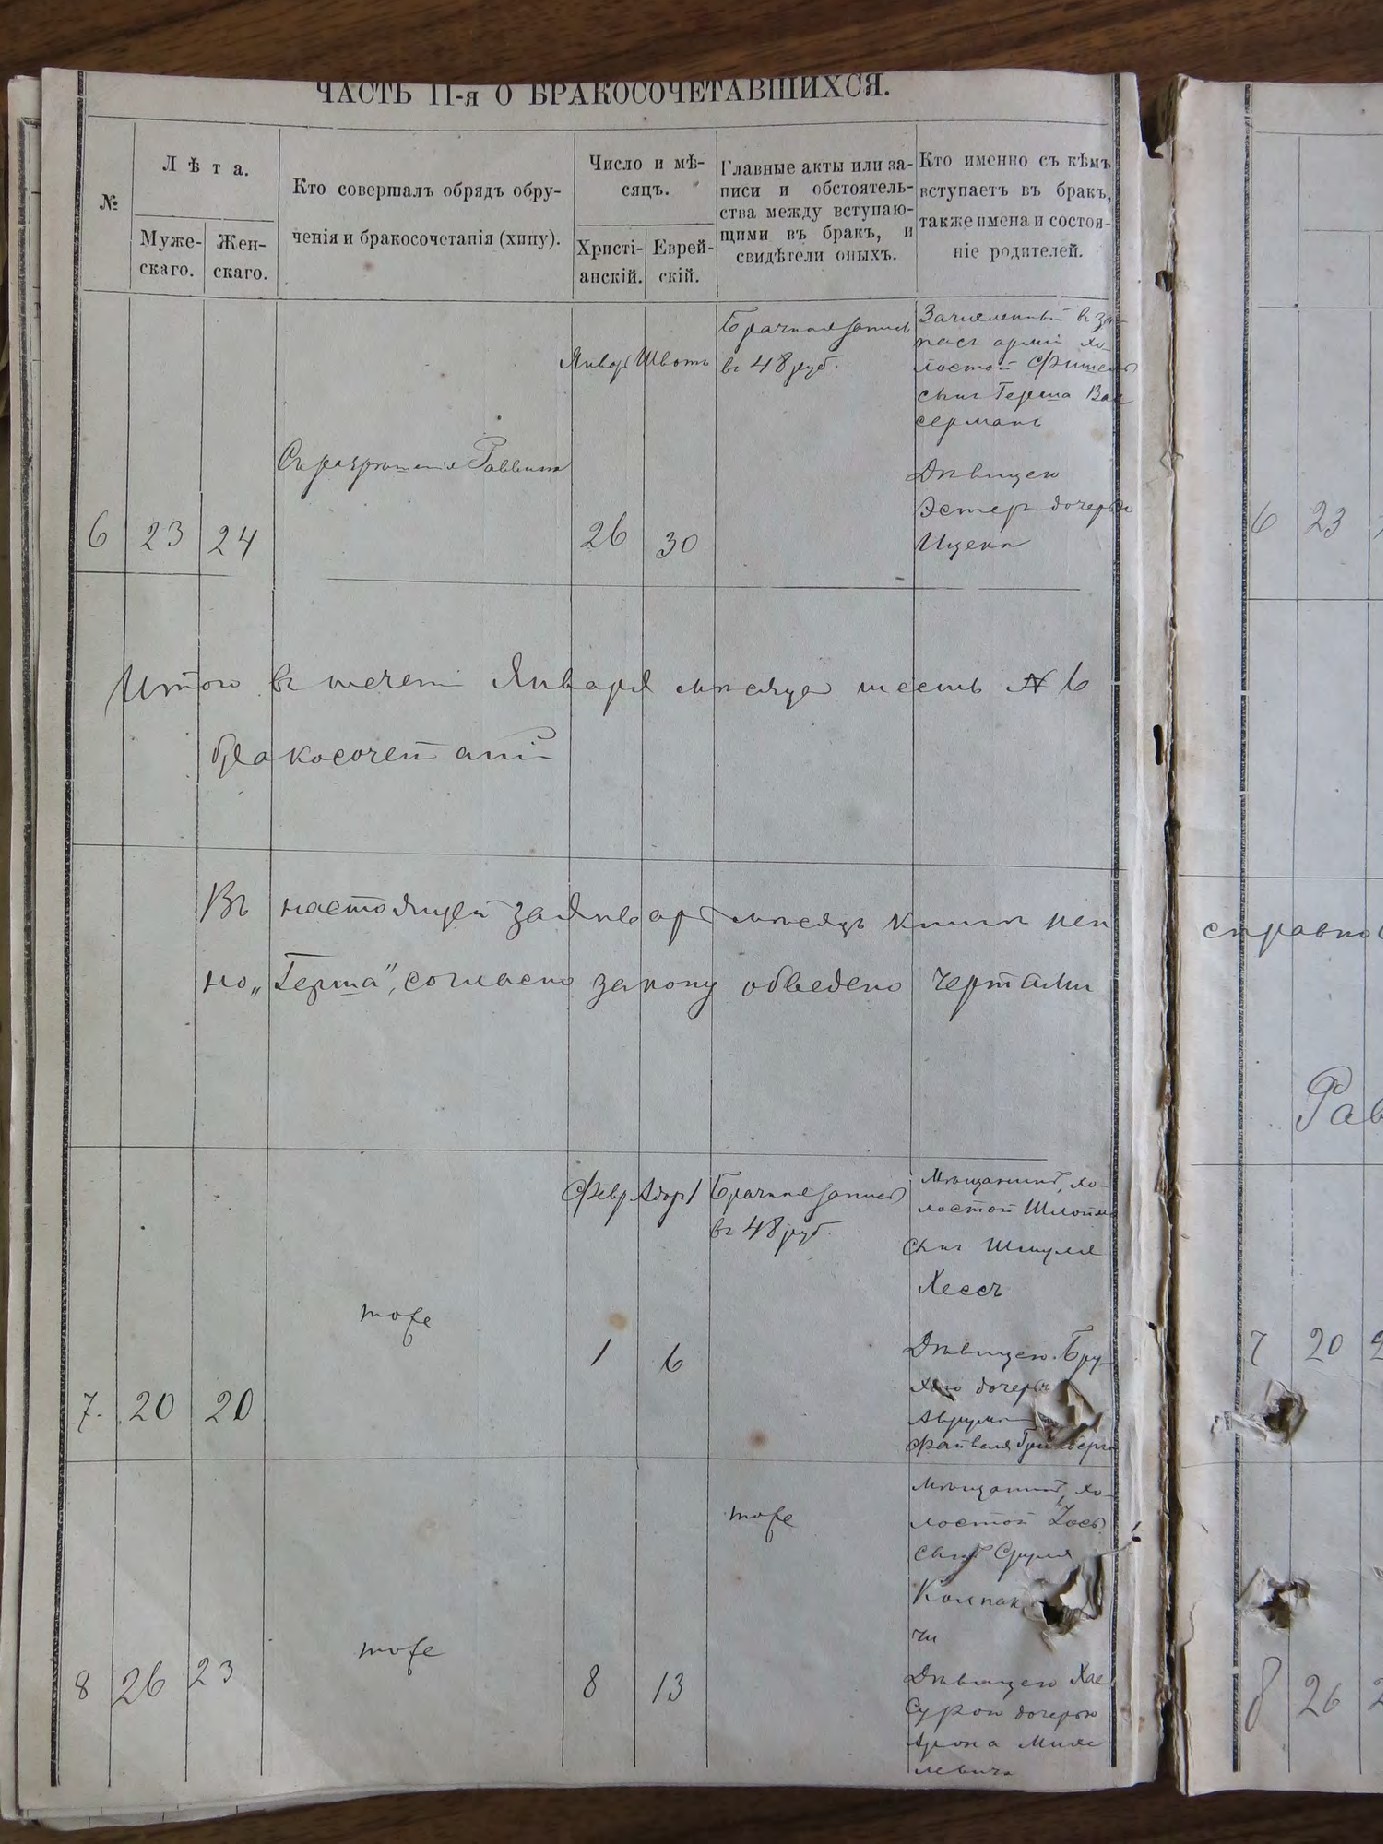 ЧАСТЬ II-я О БРАКОСОЧЕТАВШИХСЯ.
№
Лѣта.
Муже-
скаго.
Жен-
скаго.
Кто совершалъ обрядъ обру-
ченія и бракосочетанія (хипу).
Число и мѣ-
сяцъ.
Христі-
анскій.
Еврей-
скій.
Главные акты или за-
писи и обстоятель-
ства между вступаю-
щими въ бракъ, и
свидѣтели оныхъ.
Кто именно съ кѣмъ
вступаетъ въ бракъ,
также имена и состоя-
ніе родителей.
6
23
24
Съ разрѣшенія Раввина
Январ
26
Шватъ
30
Брачная запись
въ 48 руб.
Зачисленный в за-
пасъ арміи хо-
лостой Фишель
сынъ Герша Вас
серманъ
Дѣвицею
Эстеръ дочерью
Ицека
Итого въ течении Января мѣсяца шесть № 6
бракосочетаній
Въ настоящей за Январь мѣсяцъ книгѣ
но „Герша”, согласно закону обведено чертами
7.
20
20
тоже
Февр
1
Адаръ
6
Брачная запись
въ 48 руб.
Мѣщанинъ, хо-
лостой Шлойма
сынъ Шмуля
Хессъ
Дѣвицею Бру-
хою дочерью
Аврума
Файвеля
8
26
23
тоже
8
13
тоже
Мѣщанинъ, хо-
лостой
сынъ Сруля
Колпак
чи
Дѣвицею Хае
Сурою дочерью
Арона
левича
6 23
справно
Рав
7 20 2
8 26 2